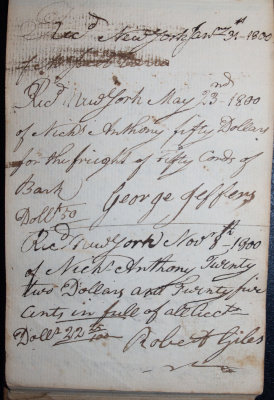 Rec.d New York Jan.ry 31.st 1800
Rec.d New York May 23.nd 1800
of Nich.s Anthony fifty Dollars
for the freight of fifty Cords of
Bark
George Jeffers
Doll.s 50
Rec.d New York Nov.r 8.th 1800
of Nich.s Anthony Twenty
two Dollars and Twenty five
Cents in full of all acct.s
Doll.s 22 25/100
Robert Giles